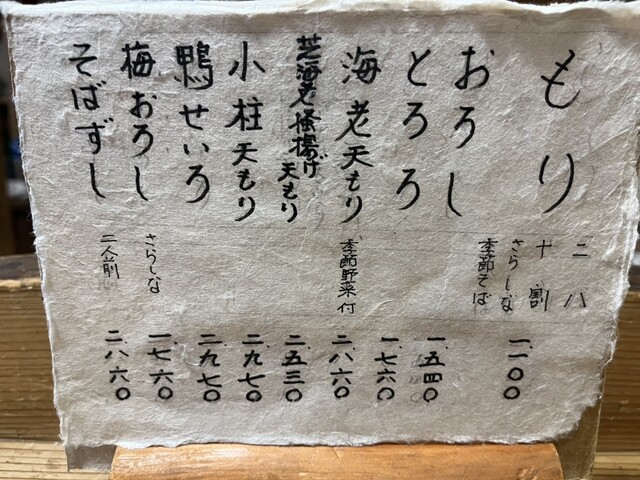 もり 二八 十割 さらしな 季節そば 一、一〇〇
おろし 一、五四〇
とろろ 一、七六〇
海老天もり 季節野菜付 二、八六〇
芝海老掻揚げ天もり 二、五三〇
小柱天もり 二、九七〇
鴨せいろ 二、九七〇
梅おろし さらしな 一、七六〇
そばずし 二人前 二、八六〇